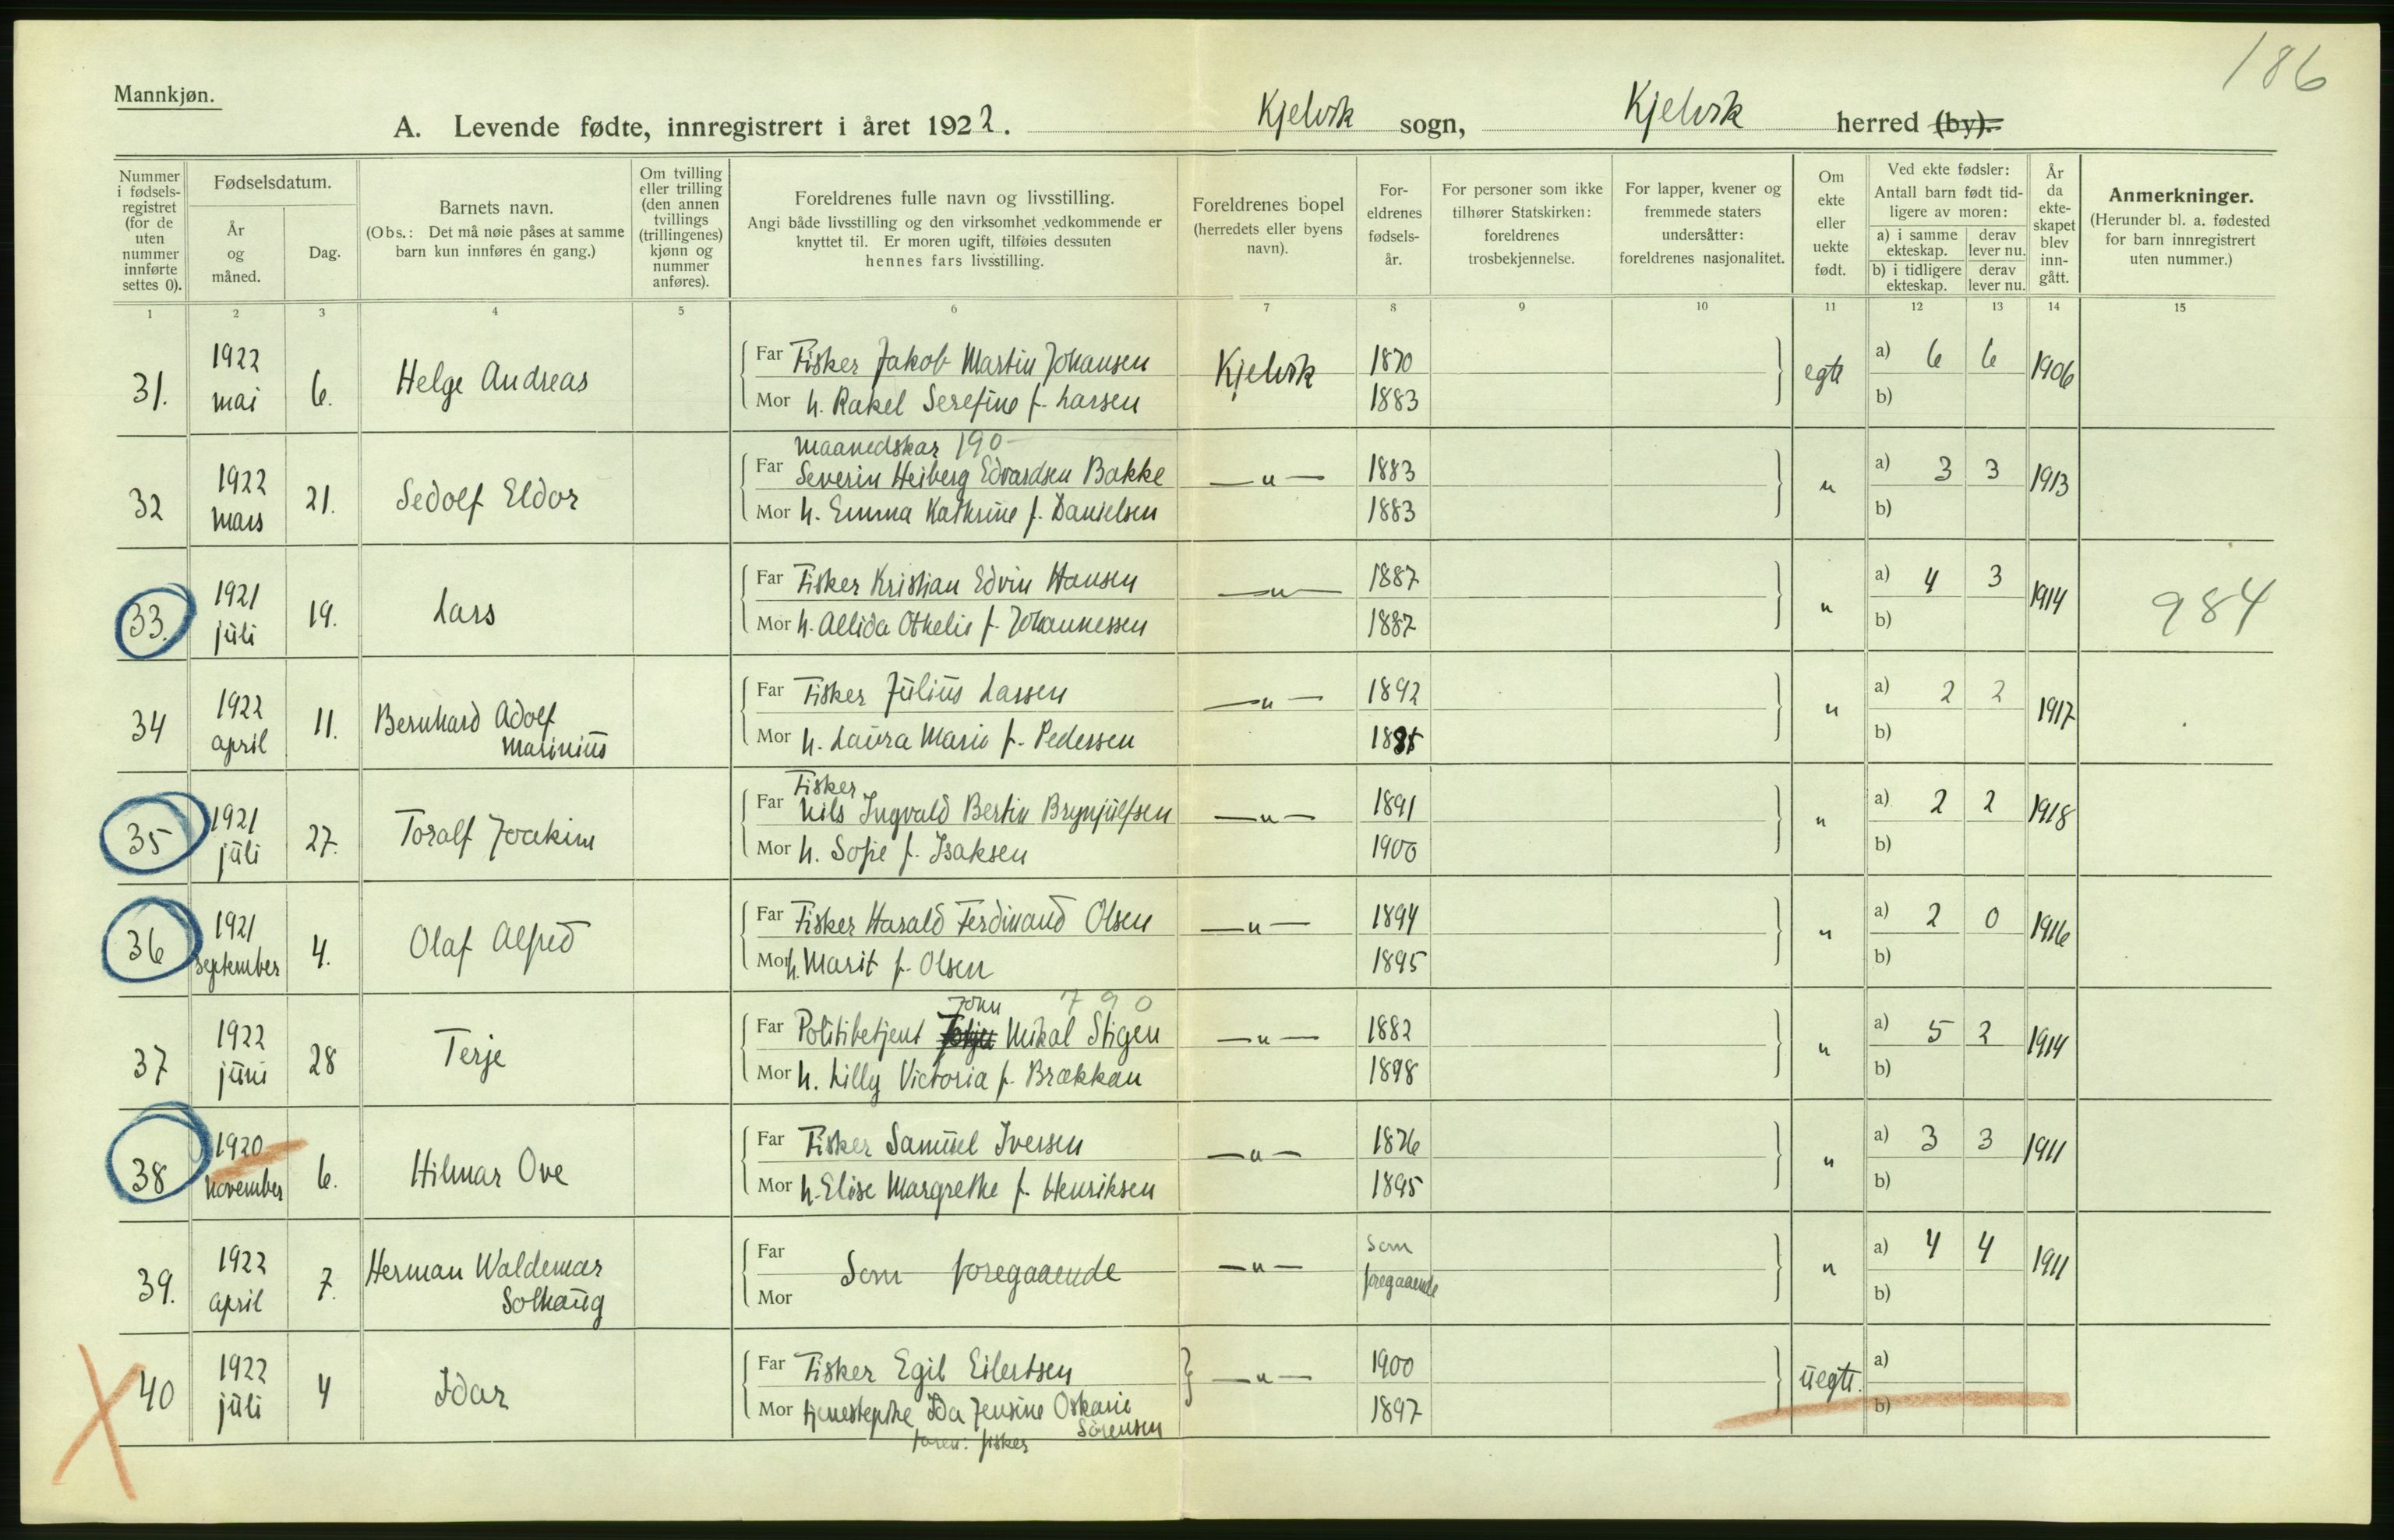 186
Mannkjøn.
A. Levende fødte, innregistrert i året 1922. Kjelvik sogn, Kjelvik herred (by).
Nummer i fødselsregistret (for de uten nummer innførte settes 0).
Fødselsdatum.
År og måned.
Dag.
Barnets navn.
(Obs.: Det må nøie påses at samme barn kun innføres én gang.)
Om tvilling eller trilling (den annen tvillings (trillingenes) kjønn og nummer anføres).
Foreldrenes fulle navn og livsstilling.
Angi både livsstilling og den virksomhet vedkommende er knyttet til. Er moren ugift, tilføies dessuten hennes fars livsstilling.
Foreldrenes bopel (herredets eller byens navn).
Foreldrenes fødselsår.
For personer som ikke tilhører Statskirken: foreldrenes trosbekjennelse.
For lapper, kvener og fremmede staters undersåtter: foreldrenes nasjonalitet.
Om ekte eller uekte født.
Ved ekte fødsler: Antall barn født tidligere av moren:
a) i samme ekteskap. derav lever nu.
b) i tidligere ekteskap. derav lever nu.
År da ekteskapet blev inngått.
Anmerkninger.
(Herunder bl. a. fødested for barn innregistrert uten nummer.)
1 2 3 4 5 6 7 8 9 10 11 12 13 14 15
31. 1922 mai 6. Helge Andreas
Far Fisker Jakob Martin Johansen Kjelvik 1870 egte a) 6 6 1906
Mor h. Rakel Serefine f. Larsen 1883 b)
32 1922 mars 21. Sedolf Eldor
maanedskar 190
Far Severin Heiberg Edvardsen Bakke —"— 1883 " a) 3 3 1913
Mor h. Emma Kathrine f. Danielsen 1883 b)
33. 1921 juli 19. Lars
Far Fisker Kristian Edvin Hansen —"— 1887 " a) 4 3 1914 984
Mor h. Allida Othelie f. Johannessen 1887 b)
34 1922 april 11. Bernhard Adolf Marinius
Far Fisker Julius Larsen —"— 1892 " a) 2 2 1917
Mor h. Laura Marie f. Pedersen b)
35 1921 juli 27. Toralf Joakim
Fisker
Far Nils Ingvald Bertin Brynjulfsen —"— 1891 " a) 2 2 1918
Mor h. Sofie f. Isaksen 1900 b)
36 1921 september 4. Olaf Alfred
Far Fisker Harald Ferdinand Olsen —"— 1894 " a) 2 0 1916
Mor h. Marit f. Olsen 1895 b)
37 1922 juni 28 Terje
John 790
Far Politibetjent Mikal Stigen —"— 1882 " a) 5 2 1914
Mor h. Lilly Victoria f. Brækkan 1898 b)
38 1920 november 6. Hilmar Ove
Far Fisker Samuel Iversen —"— 1876 " a) 3 3 1911
Mor h. Elise Margrethe f. Henriksen 1895 b)
39. 1922 april 7. Herman Waldemar Solhaug
Far Som foregaaende —"— Som foregaaende " a) 4 4 1911
Mor b)
40 1922 juli 4 Idar
Far Fisker Egil Eilertsen —"— 1900 uegte. a)
Mor tjenestepike Ida Jensine Oskarie Sørensen 1897 b)
faren: fisker